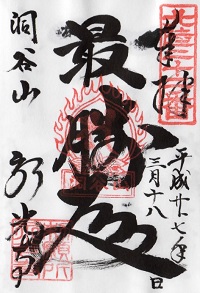 奉拝
平成廿七年
三月十八日
最勝殿
洞谷山
永光寺